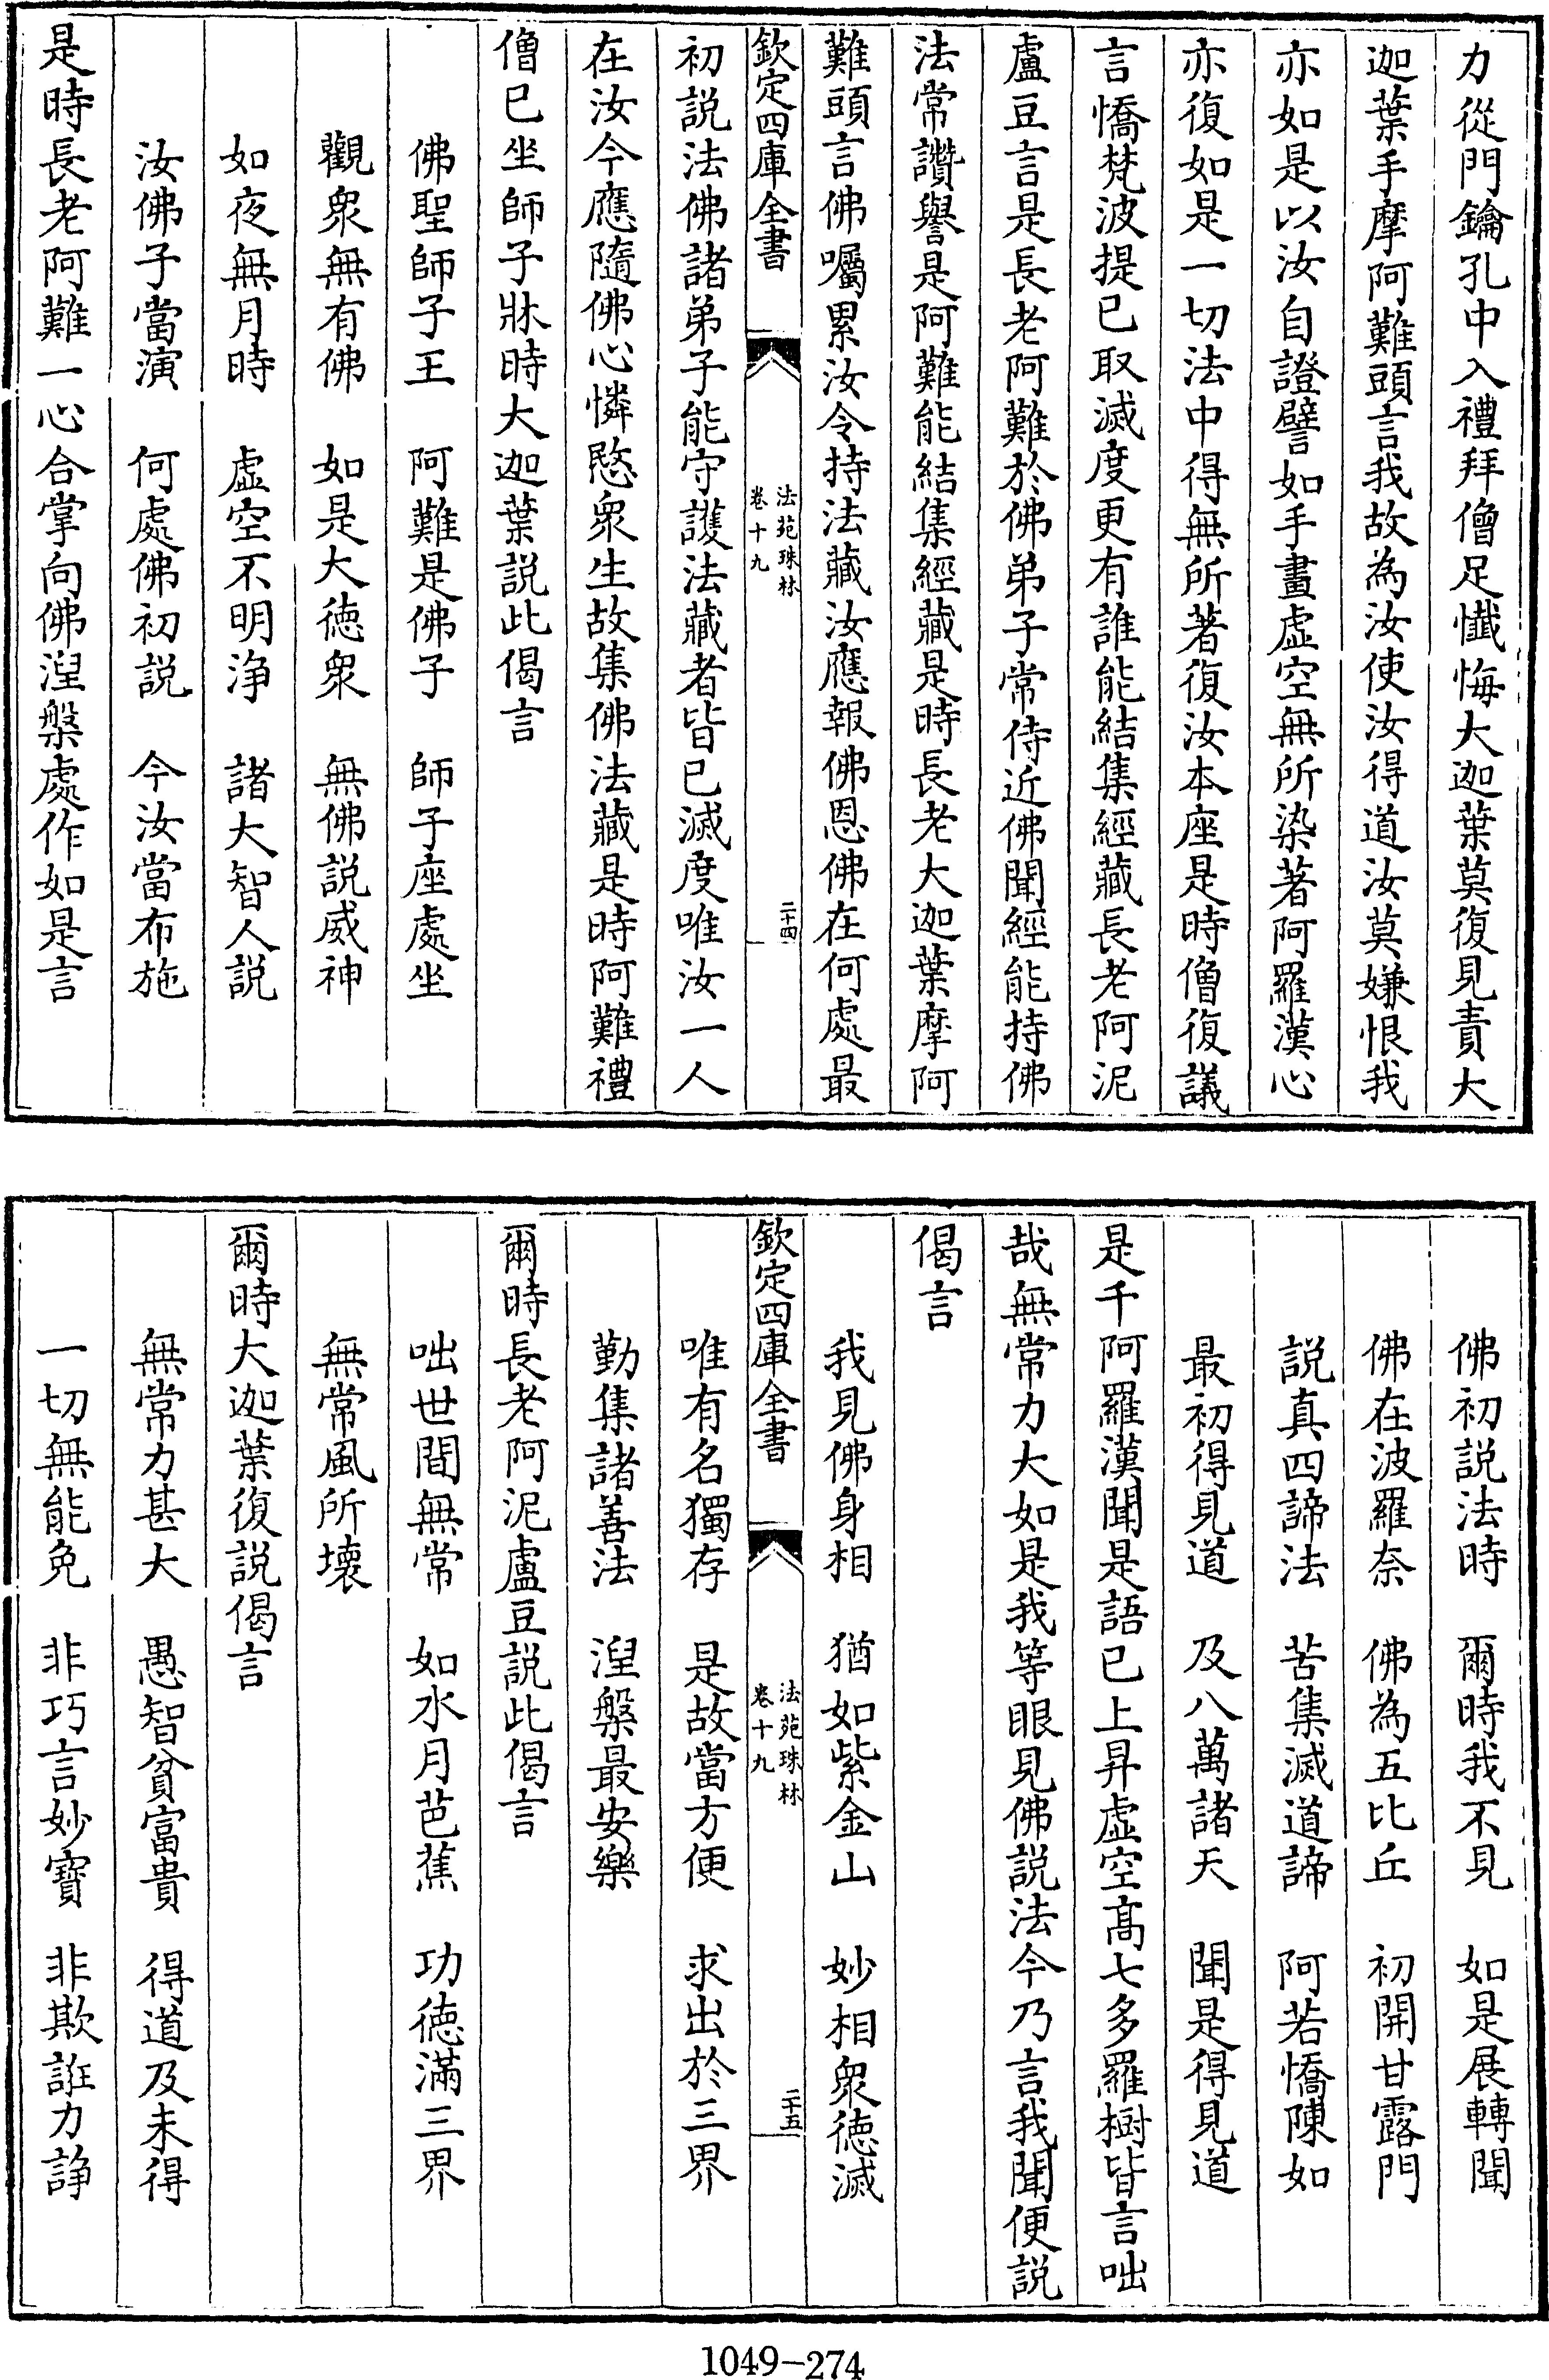 力從門鑰孔中入禮拜僧足懺悔大迦葉莫復見責大
迦葉手摩阿難頭言我故為汝使汝得道汝莫嫌恨我
亦如是以汝自證譬如手畫虛空無所染著阿羅漢心
亦復如是一切法中得無所著復汝本座是時僧復議
言憍梵波提已取滅度更有誰能結集經藏長老阿泥
盧豆言是長老阿難於佛弟子常侍近佛聞經能持佛
法常讚譽是阿難能結集經藏是時長老大迦葉摩阿
難頭言佛囑累汝令持法藏汝應報佛恩佛在何處最
欽定四庫全書
法苑珠林
卷十九
二十四
初説法佛諸弟子能守護法藏者皆已滅度唯汝一人
在汝今應隨佛心憐愍衆生故集佛法藏是時阿難禮
僧已坐師子牀時大迦葉説此偈言
佛聖師子王　阿難是佛子　師子座處坐
觀衆無有佛　如是大徳衆　無佛説威神
如夜無月時　虛空不明浄　諸大智人説
汝佛子當演　何處佛初説　今汝當布施
是時長老阿難一心合掌向佛涅槃處作如是言
佛初説法時　爾時我不見　如是展轉聞
佛在波羅奈　佛為五比丘　初開甘露門
説真四諦法　苦集滅道諦　阿若憍陳如
最初得見道　及八萬諸天　聞是得見道
是千阿羅漢聞是語已上昇虛空髙七多羅樹皆言咄
哉無常力大如是我等眼見佛説法今乃言我聞便説
偈言
我見佛身相　猶如紫金山　妙相衆徳滅
欽定四庫全書
法苑珠林
卷十九
二十五
唯有名獨存　是故當方便　求出於三界
勤集諸善法　涅槃最安樂
爾時長老阿泥盧豆説此偈言
咄世間無常　如水月芭蕉　功徳滿三界
無常風所壞
爾時大迦葉復説偈言
無常力甚大　愚智貧富貴　得道及未得
一切無能免　非巧言妙寶　非欺誑力諍
1049-274